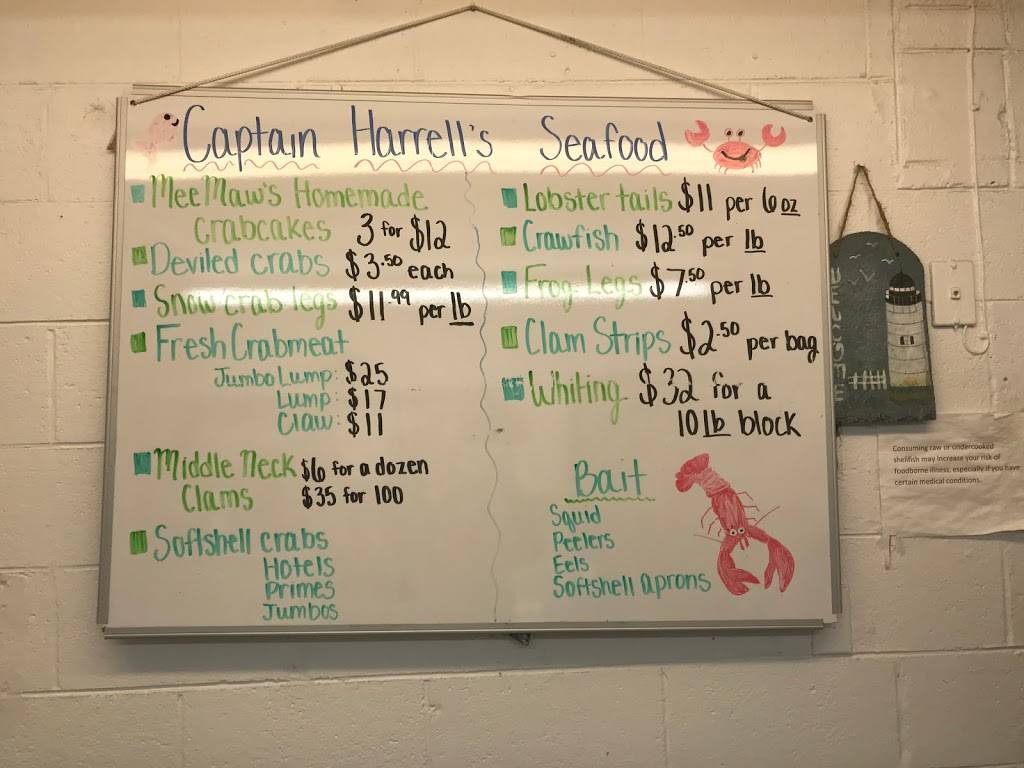 Captain Harrell's Seafood
MeeMaw's Homemade
Crabcakes 3 for $12
Deviled crabs $3.50 each
Snow crab legs $11.99 per lb
Fresh Crabmeat
Jumbo Lump: $25
Lump: $17
Claw: $11
Middle Neck $6 for a dozen
Clams $35 for 100
Softshell crabs
Hotels
Primes
Jumbos
Lobster tails $11 per 6 oz
Crawfish $12.50 per lb
Frog Legs $7.50 per lb
Clam Strips $2.50 per bag
Whiting $32 for a
10 lb block
Bait
Squid
Peelers
Eels
Softshell aprons
WELCOME
Consuming raw or undercooked
shellfish may increase your risk of
foodborne illness, especially if you have
certain medical conditions.